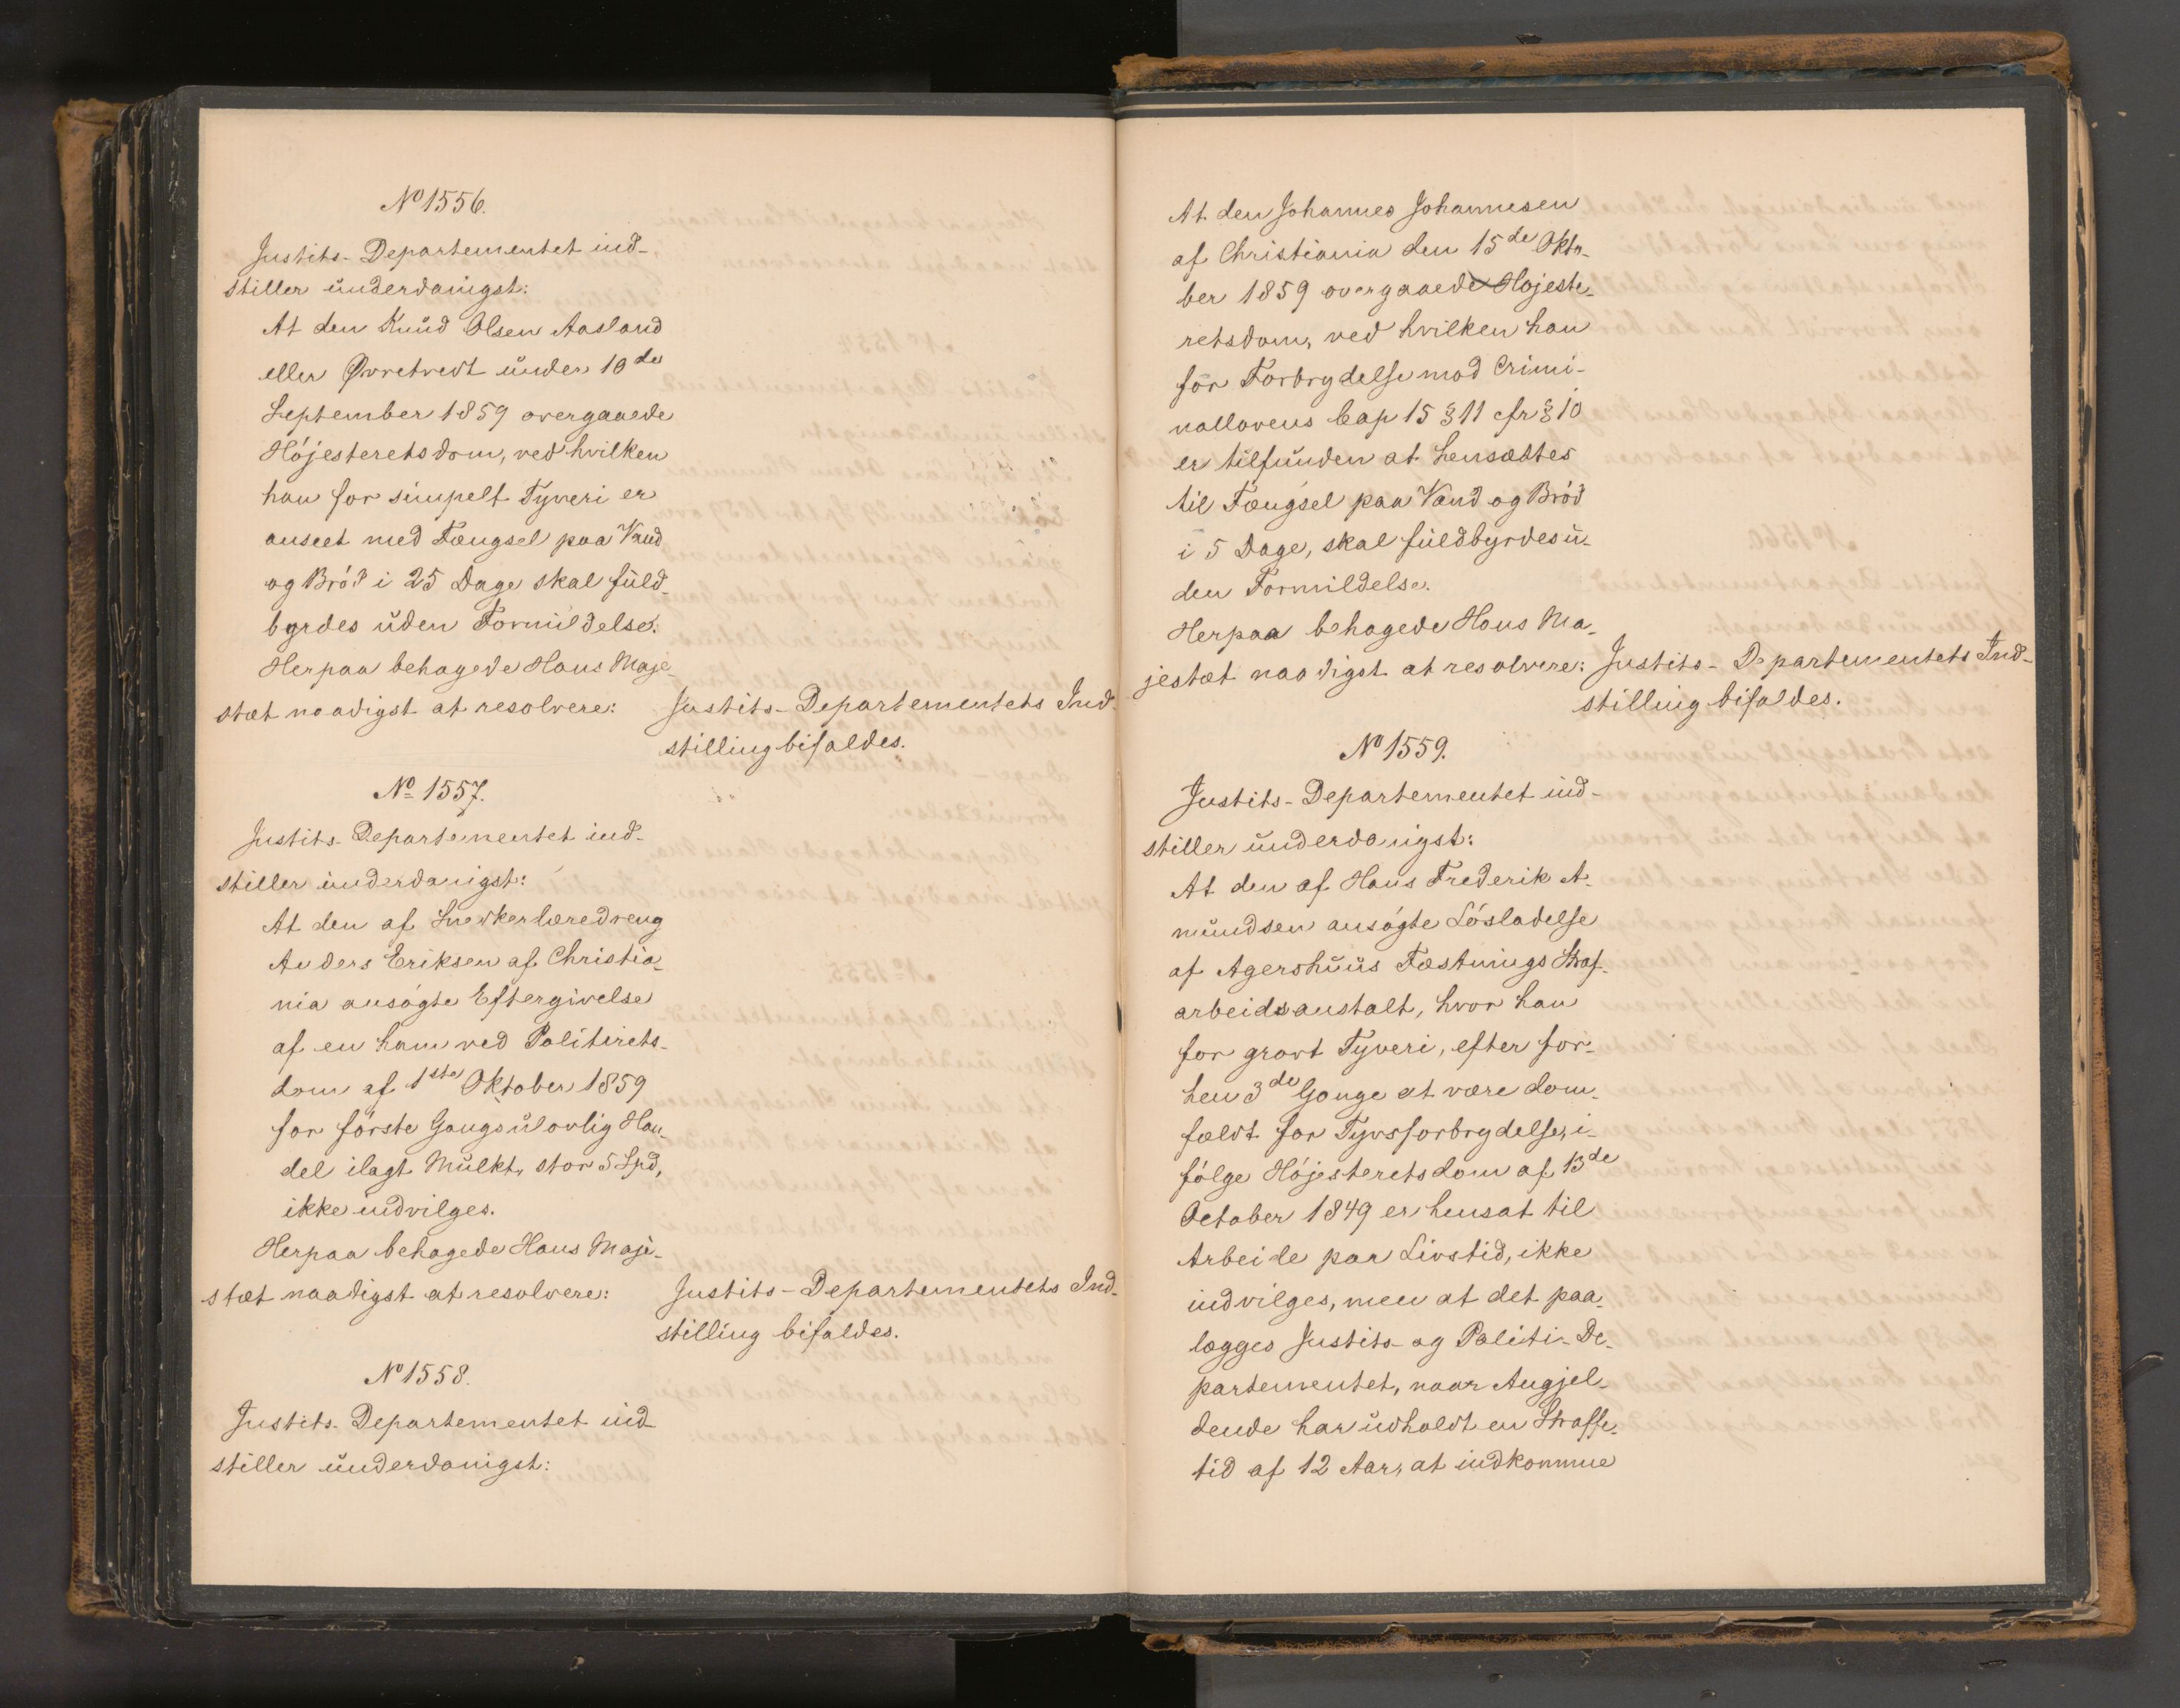 No 1556.
Justits-Departementet ind-
stiller underdanigst:
At den Knud Olsen Aasland
eller Øvretvedt under 10de
September 1859 overgaaede
Højesteretsdom, ved hvilken
han for simpelt Tyveri er
anseet med Fængsel paa Vand
og Brød i 25 Dage skal fuld-
byrdes uden Formildelse.
Herpaa behagede Hans Maje-
stæt naadigst at resolvere:
Justits-Departementets Ind-
stilling bifaldes.
No 1557.
Justits-Departementet ind-
stiller underdanigst:
At den af Snedkerlæredreng
Anders Eriksen af Christia-
nia ansøgte Eftergivelse
af en ham ved Politirets-
dom af 1ste Oktober 1859
for første Gangs ulovlig Han-
del ilagt Mulkt, stor 5 Spd,
ikke indvilges.
Herpaa behagede Hans Maje-
stæt naadigst at resolvere:
Justits-Departementets Ind-
stilling bifaldes.
No 1558.
Justits-Departementet ind-
stiller underdanigst:
At den Johannes Johannesen
af Christiania den 15de Okto-
ber 1859 overgaaede Højeste-
retsdom, ved hvilken han
for Forbrydelse mod Crimi-
nallovens Cap 15 § 11 cfr § 10
er tilfunden at hensættes
til Fængsel paa Vand og Brød
i 5 Dage, skal fuldbyrdes u-
den Formildelse.
Herpaa behagede Hans Ma-
jestæt naadigst at resolvere:
Justits-Departementets Ind-
stilling bifaldes.
No 1559.
Justits-Departementet ind-
stiller underdanigst:
At den af Hans Frederik A-
mundsen ansøgte Løsladelse
af Agershuus Fæstnings Straf-
arbeidsanstalt, hvor han
for grovt Tyveri, efter for-
hen 3de Gange at være dom-
fældt for Tyvsforbrydelse, i-
følge Højesteretsdom af 13de
October 1849 er hensat til
Arbeide paa Livstid, ikke
indvilges, men at det paa-
lægges Justits- og Politi-De-
partementet, naar Angjel-
dende har udholdt en Straffe-
tid af 12 Aar, at indkomme